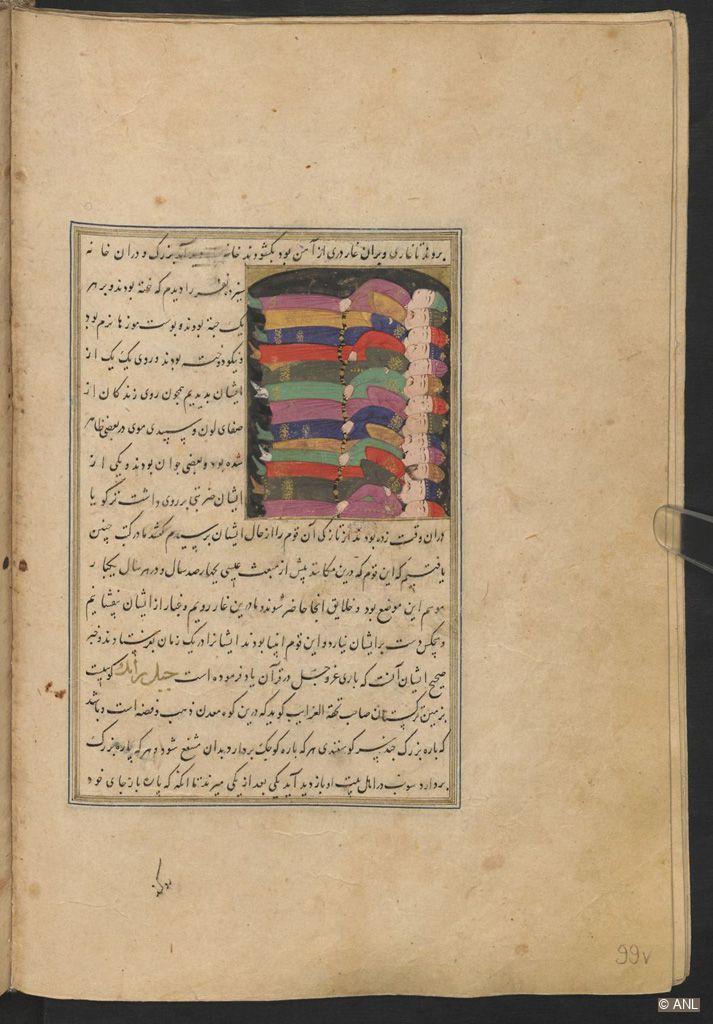 بروند تا غاری و بران غار دری از آهن بود بکشودند خانه بزرک و دران خانه
سیزده نفر را دیدم که خفته بودند و بر هر
یک جبّه بودند و پوست موزها نرم بود
و نیکو دوخته بودند و روی یک یک از
ایشان بدیدیم همجون روی زندکان از
صفای لون و سپیدی موی در بعضی ظاهر
شده بود و بعضی جوان بودند و یکی از
ایشان ضربتی بر روی داشت که کویا
دران وقت زده بودند از تازکی آن قوم را از حال ایشان پرسیدم کفتند ما در کتب چنین
یافتیم که این قوم که درین مکانند پیش از مبعث عیسی بچهار صد سال و در هر سال یکبار
موسم این موضع بود و خلایق انجا حاضر شوند و ما درین غار رویم و غبار از ایشان بیفشانیم
و هیچکس دست بر ایشان نیارد و این قوم انبیا بودند ایشانرا در یک زمان و خبر
صحیح ایشان آنست که باری عز و جل در قرآن یاد فرموده است جبل کوهیست
بزمین ترکستان صاحب تحفة الغرایب کوید که درین کوه معدن ذهب و فضه است و باشد
که پاره بزرک جند سر کوسفندی هر که پاره کوجک بردارد بدان منتفع شود و هر که پاره بزرک
بردارد موت در اهل بیت او بازدید آید یکی بعد از یکی میرند تا انکه که پاره باز جای خود
99v
© ANL